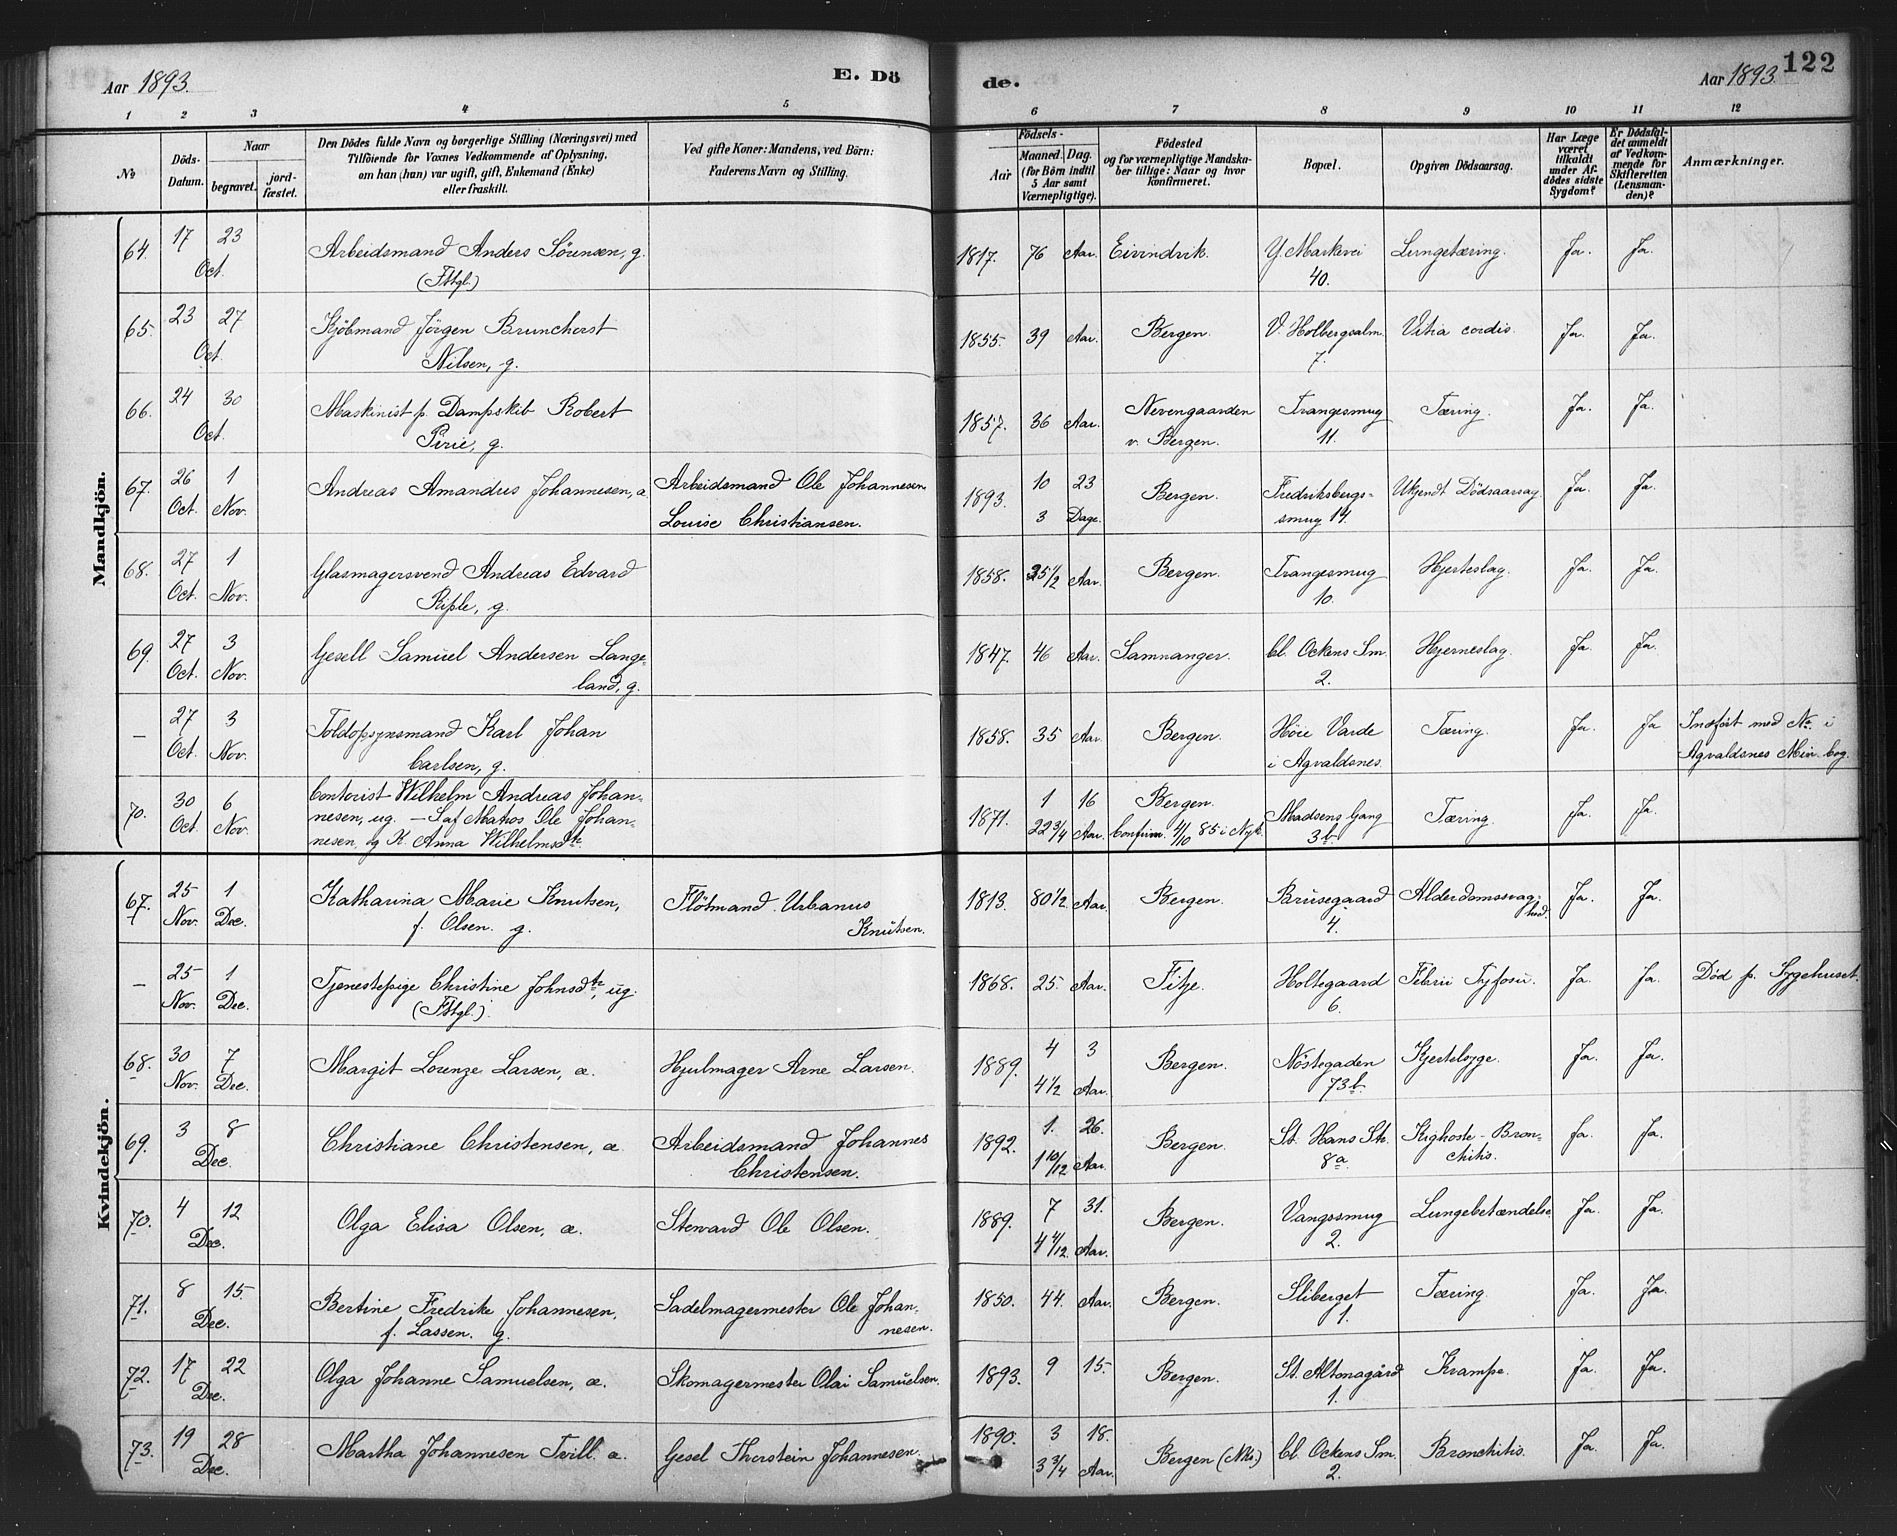 Aar 1893.
E. Dö
de.
Aar 1893.
122
1 2 3 4 5 6 7 8 9 10 11 12
No
Döds-
Datum.
Naar
begravet.
jord-
fæstet.
Den Dödes fulde Navn og borgerlige Stilling (Næringsvei) med
Tilföiende for Voxnes Vedkommende af Oplysning,
om han (hun) var ugift, gift, Enkemand (Enke)
eller fraskilt.
Ved gifte Koner: Mandens, ved Börn:
Faderens Navn og Stilling.
Födsels-
Aar
Maaned. Dag.
(for Börn indtil
5 Aar samt
Værnepligtige).
Födested
og for værnepligtige Mandska-
ber tillige: Naar og hvor
konfirmeret.
Bopæl.
Opgiven Dödsaarsag.
Har Læge
været
tilkaldt
under Af-
dödes sidste
Sygdom?
Er Dödsfal-
det anmeldt
af Vedkom-
mende for
Skifteretten
(Lensman-
den)?
Anmærkninger.
Mandkjön.
64. 17 23 Oct. Arbeidsmand Anders Sörensen, g.
(Fttgl.)
1817. 76 Aar. Eivindvik. Y. Markevei
40.
Lungetæring. Ja. Ja.
65. 23 27 Oct. Kjöbmand Jörgen Brunchorst
Nilsen, g.
1855. 39 Aar. Bergen. V. Holbergsalm.
7.
Vitia cordis. Ja. Ja.
66. 24 30 Oct. Maskinist p. Dampskib Robert
Pirie, g.
1857. 36 Aar. Nevengaarden
v. Bergen.
Trangesmug
11.
Tæring. Ja. Ja.
67. 26 Oct. 1 Nov. Andreas Amandus Johannesen, æ
Arbeidsmand Ole Johannesen
Louise Christiansen.
1893. 10 23
3 Dage.
Bergen. Fredriksbergs-
smug 14.
Ukjendt Dödsaarsag. Ja. Ja.
68. 27 Oct. 1 Nov. Glasmagersvend Andreas Edvard
Riple, g.
1858. 35 1/2 Aar. Bergen. Trangesmug
10.
Hjerteslag. Ja. Ja.
69. 27 Oct. 3 Nov. Gesell Samuel Andersen Lange-
land, g.
1847. 46 Aar. Samnanger. Cl. Ockens Sm.
2.
Hjerneslag. Ja. Ja.
– 27 Oct. 3 Nov. Toldopsynsmand Karl Johan
Carlsen, g.
1858. 35 Aar. Bergen. Höie Varde
i Agvaldsnes.
Tæring. Ja. Ja
Indfört med No. i
Agvaldsnes Min. bog.
70. 30 Oct. 6 Nov. Contorist Wilhelm Andreas Johan-
nesen, ug. – S. af Matros Ole Johan-
nesen, og K. Anna Wilhelmsdtr.
1871. 1 16
22 3/4 Aar.
Bergen.
Confirm. 4/10 85 i Nyk.
Madsens Gang
3b.
Tæring. Ja. Ja.
Kvindekjön.
67. 25 Nov. 1 Dec. Katharina Marie Knutsen,
f. Olsen. g.
Flötmand Urbanus
Knutsen.
1813. 80 1/2 Aar. Bergen. Brusegaard
4.
Alderdomssvag-
hed.
Ja. Ja.
– 25 Nov. 1 Dec. Tjenestepige Christine Johnsdtr, ug.
(Fttgl.)
1868. 25. Aar. Fitje. Holtegaard
6.
Febrii Tyfosii. Ja Ja. Död p. Sygehuset.
68. 30 Nov. 7 Dec. Margit Lorenze Larsen, æ.
Hjulmager Arne Larsen.
1889. 4 3
4 1/2 Aar.
Bergen. Nöstegaden
73b.
Hjertesyge. Ja. Ja.
69. 3 8 Dec. Christiane Christensen, æ.
Arbeidsmand Johannes
Christensen.
1892. 1. 26.
1 10/12 Aar.
Bergen. St. Hans Str.
8a.
Kighoste-Bron-
chitis.
Ja. Ja.
70. 4 12 Dec. Olga Elisa Olsen, æ.
Steward Ole Olsen.
1889. 7 31.
4 4/12 Aar.
Bergen. Vangssmug
2.
Lungebetændelse Ja. Ja.
71. 8 15. Dec. Bertine Fredrike Johannesen,
f. Lassen. g.
Sadelmagermester Ole Johan-
nesen.
1850. 44. Aar. Bergen. Sliberget
1.
Tæring. Ja. Ja.
72. 17 22 Dec. Olga Johanne Samuelsen, æ.
Skomagermester Olai Samuelsen.
1893. 9 15. Bergen. St. Altonagård
1.
Krampe. Ja. Ja.
73. 19 28 Dec. Martha Johannesen Tvill. æ.
Gesel Thorstein Johannesen.
1890. 3 18.
3 3/4 Aar.
Bergen (Nks.) Cl. Ockens Sm.
2.
Bronchitis. Ja. Ja.